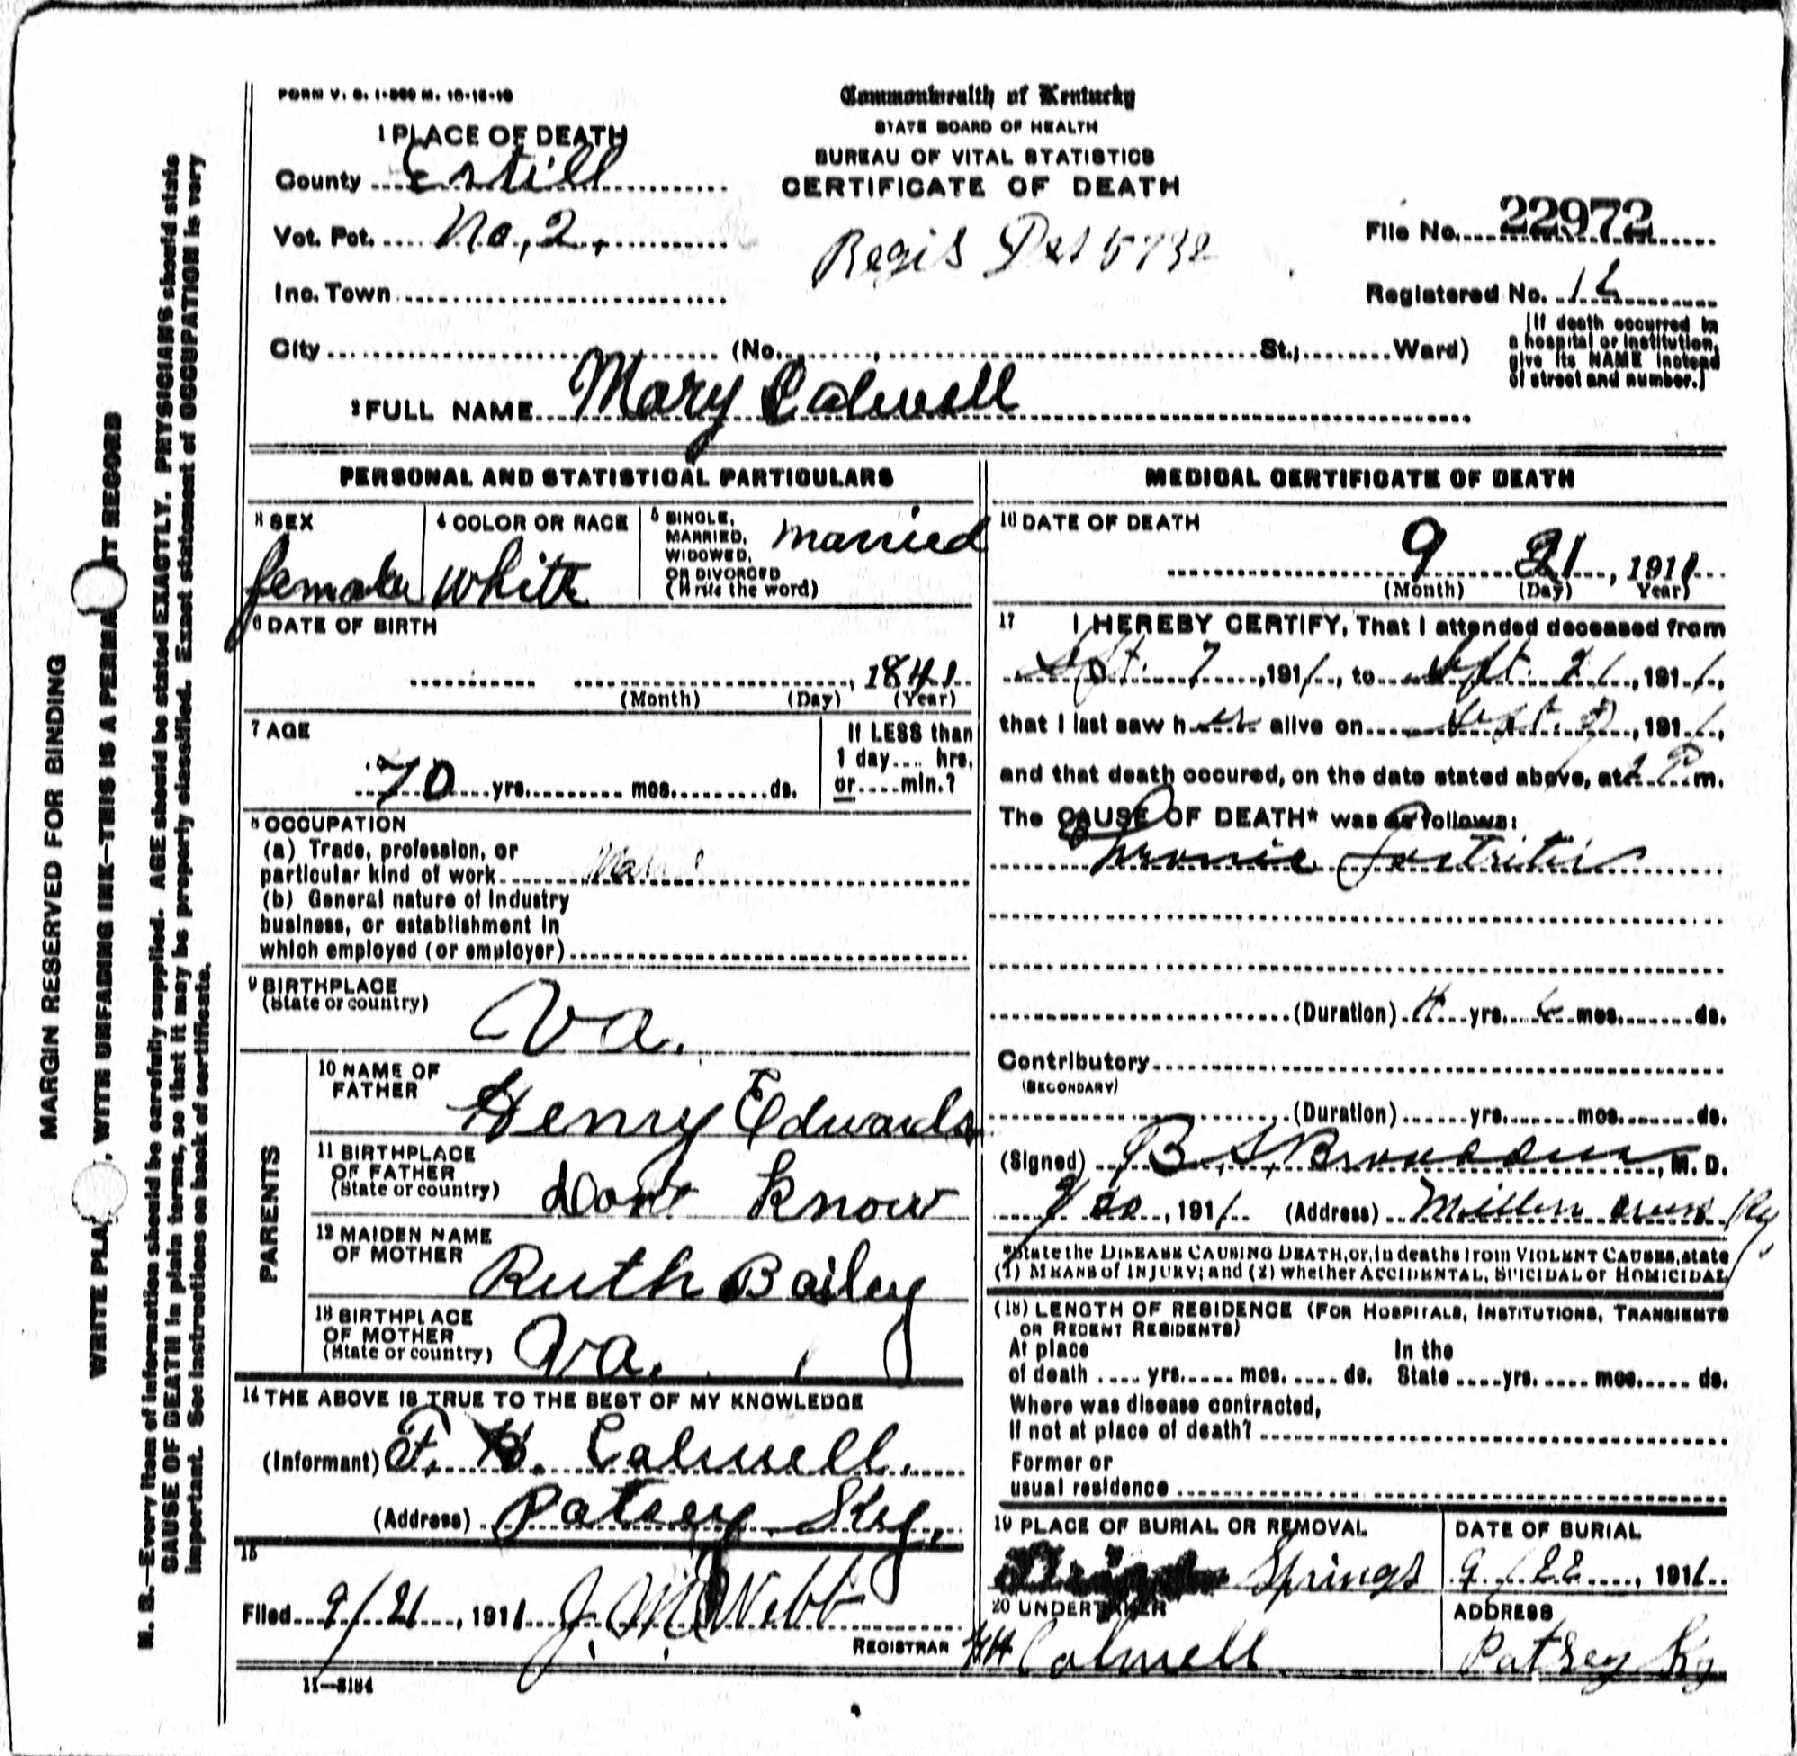 FORM V. S. 1-500 M. 10-15-10
Commonwealth of Kentucky
STATE BOARD OF HEALTH
BUREAU OF VITAL STATISTICS
CERTIFICATE OF DEATH
1 PLACE OF DEATH
County Estill
Vot. Pct. No. 2.
Regis Dst 5732
File No. 22972
Inc. Town
Registered No. 12
City (No. , St.; Ward)
(If death occurred in
a hospital or institution,
give its NAME instead
of street and number.)
2 FULL NAME Mary Calwell
PERSONAL AND STATISTICAL PARTICULARS
3 SEX
female
4 COLOR OR RACE
White
5 SINGLE,
MARRIED,
WIDOWED,
OR DIVORCED
(Write the word)
married
6 DATE OF BIRTH
, 1841
(Month) (Day) (Year)
7 AGE
70 yrs. mos. ds.
If LESS than
1 day.... hrs.
or....min.?
8 OCCUPATION
(a) Trade, profession, or
particular kind of work
(b) General nature of Industry
business, or establishment in
which employed (or employer)
9 BIRTHPLACE
(State or country)
Va.
PARENTS
10 NAME OF
FATHER
Henry Edwards
11 BIRTHPLACE
OF FATHER
(State or country)
dont know
12 MAIDEN NAME
OF MOTHER
Ruth Bailey
13 BIRTHPLACE
OF MOTHER
(State or country)
Va.
14 THE ABOVE IS TRUE TO THE BEST OF MY KNOWLEDGE
(Informant) F. H. Calwell.
(Address) Patsey Ky.
15
Filed 9/21, 1911 J. M. Webb
REGISTRAR
11-3184
MEDICAL CERTIFICATE OF DEATH
16 DATE OF DEATH
9 21, 1911
(Month) (Day) Year)
17 I HEREBY CERTIFY, That I attended deceased from
Sept. 7, 1911, to Sept. 21, 1911,
that I last saw her alive on Sept. , 1911,
and that death occured, on the date stated above, at P m.
The CAUSE OF DEATH* was as follows:
Chronic Gastritis
(Duration) yrs. 6 mos. ds.
Contributory
(SECONDARY)
(Duration) yrs. mos. ds.
(Signed) B S Broaddus, M. D.
, 1911 (Address) Millers Creek Ky.
*State the DISEASE CAUSING DEATH, or, in deaths from VIOLENT CAUSES, state
(1) MEANS of INJURY; and (2) whether ACCIDENTAL, SUICIDAL or HOMICIDAL
(18) LENGTH OF RESIDENCE (FOR HOSPITALS, INSTITUTIONS, TRANSIENTS
OR RECENT RESIDENTS)
At place In the
of death .... yrs. .... mos. .... ds. State .... yrs. .... mos. .... ds.
Where was disease contracted,
If not at place of death?
Former or
usual residence
19 PLACE OF BURIAL OR REMOVAL
Springs
DATE OF BURIAL
9/22, 1911
20 UNDERTAKER
Calwell
ADDRESS
Patsey Ky
MARGIN RESERVED FOR BINDING
WRITE PLA , WITH UNFADING INK—THIS IS A PERMA T RECORD
N. B.—Every item of information should be carefully supplied. AGE should be stated EXACTLY. PHYSICIANS should state
CAUSE OF DEATH in plain terms, so that it may be properly classified. Exact statement of OCCUPATION is very
important. See instructions on back of certificate.